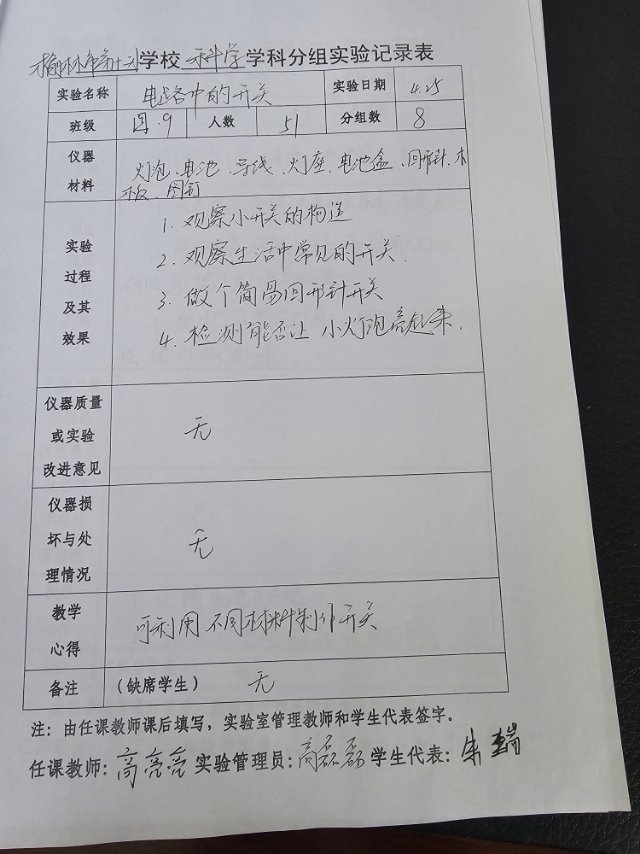 榆林市第十小学校 科学 学科分组实验记录表
实验名称 电路中的开关 实验日期 4.25
班级 四.9 人数 51 分组数 8
仪器材料 灯泡、电池、导线、灯座、电池盒、回形针、木
板、图钉
实验过程及其效果
1. 观察小开关的构造
2. 观察生活中常见的开关.
3. 做个简易回形针开关
4. 检测能否让小灯泡亮起来.
仪器质量或实验改进意见 无
仪器损坏与处理情况 无
教学心得 可利用不同材料制作开关
备注 (缺席学生) 无
注：由任课教师课后填写，实验室管理教师和学生代表签字。
任课教师：高亮亮 实验管理员：高磊磊 学生代表：朱